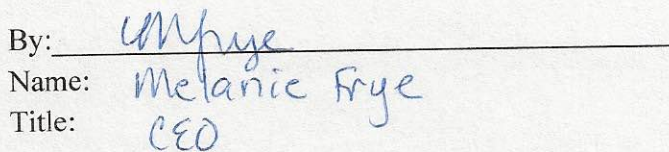 By: MFrye
Name: Melanie Frye
Title: CEO